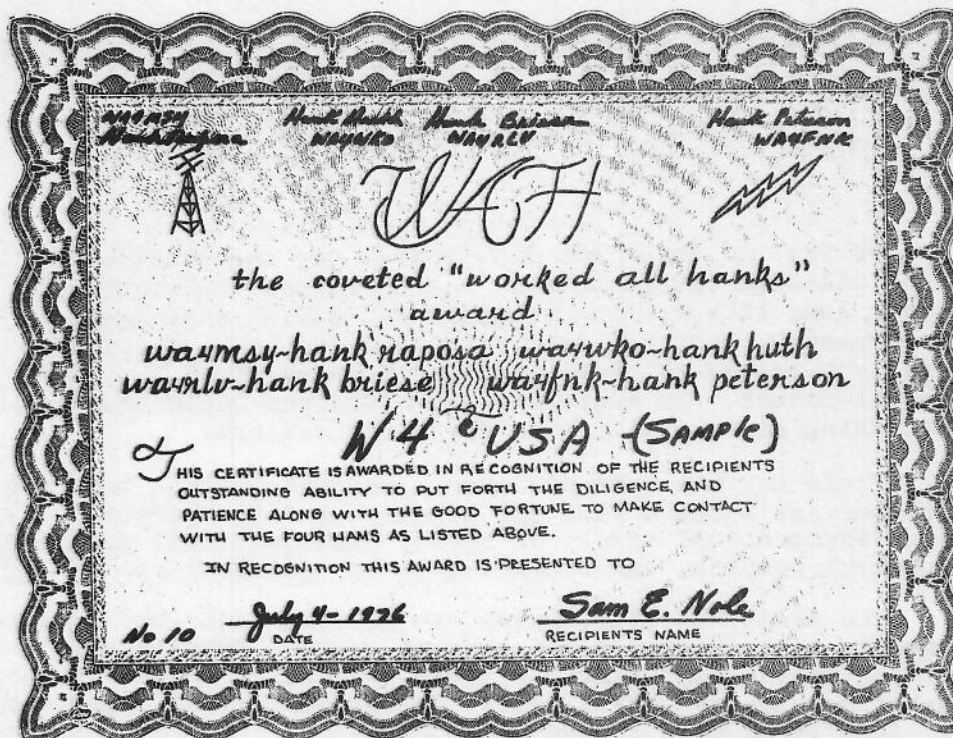 WA4MSY Hank Huth Hank Briese Hank Peterson
Hank Raposa WA4WKO WA4RLV WA4FNK
WAH
the coveted "worked all hanks"
award
wa4msy~hank raposa wa4wko~hank huth
wa4rlv~hank briese wa4fnk~hank peterson
to
W4USA (SAMPLE)
THIS CERTIFICATE IS AWARDED IN RECOGNITION OF THE RECIPIENTS
OUTSTANDING ABILITY TO PUT FORTH THE DILIGENCE, AND
PATIENCE ALONG WITH THE GOOD FORTUNE TO MAKE CONTACT
WITH THE FOUR HAMS AS LISTED ABOVE.
IN RECOGNITION THIS AWARD IS PRESENTED TO
No 10 July 4-1976 Sam E. Nole
DATE RECIPIENTS NAME